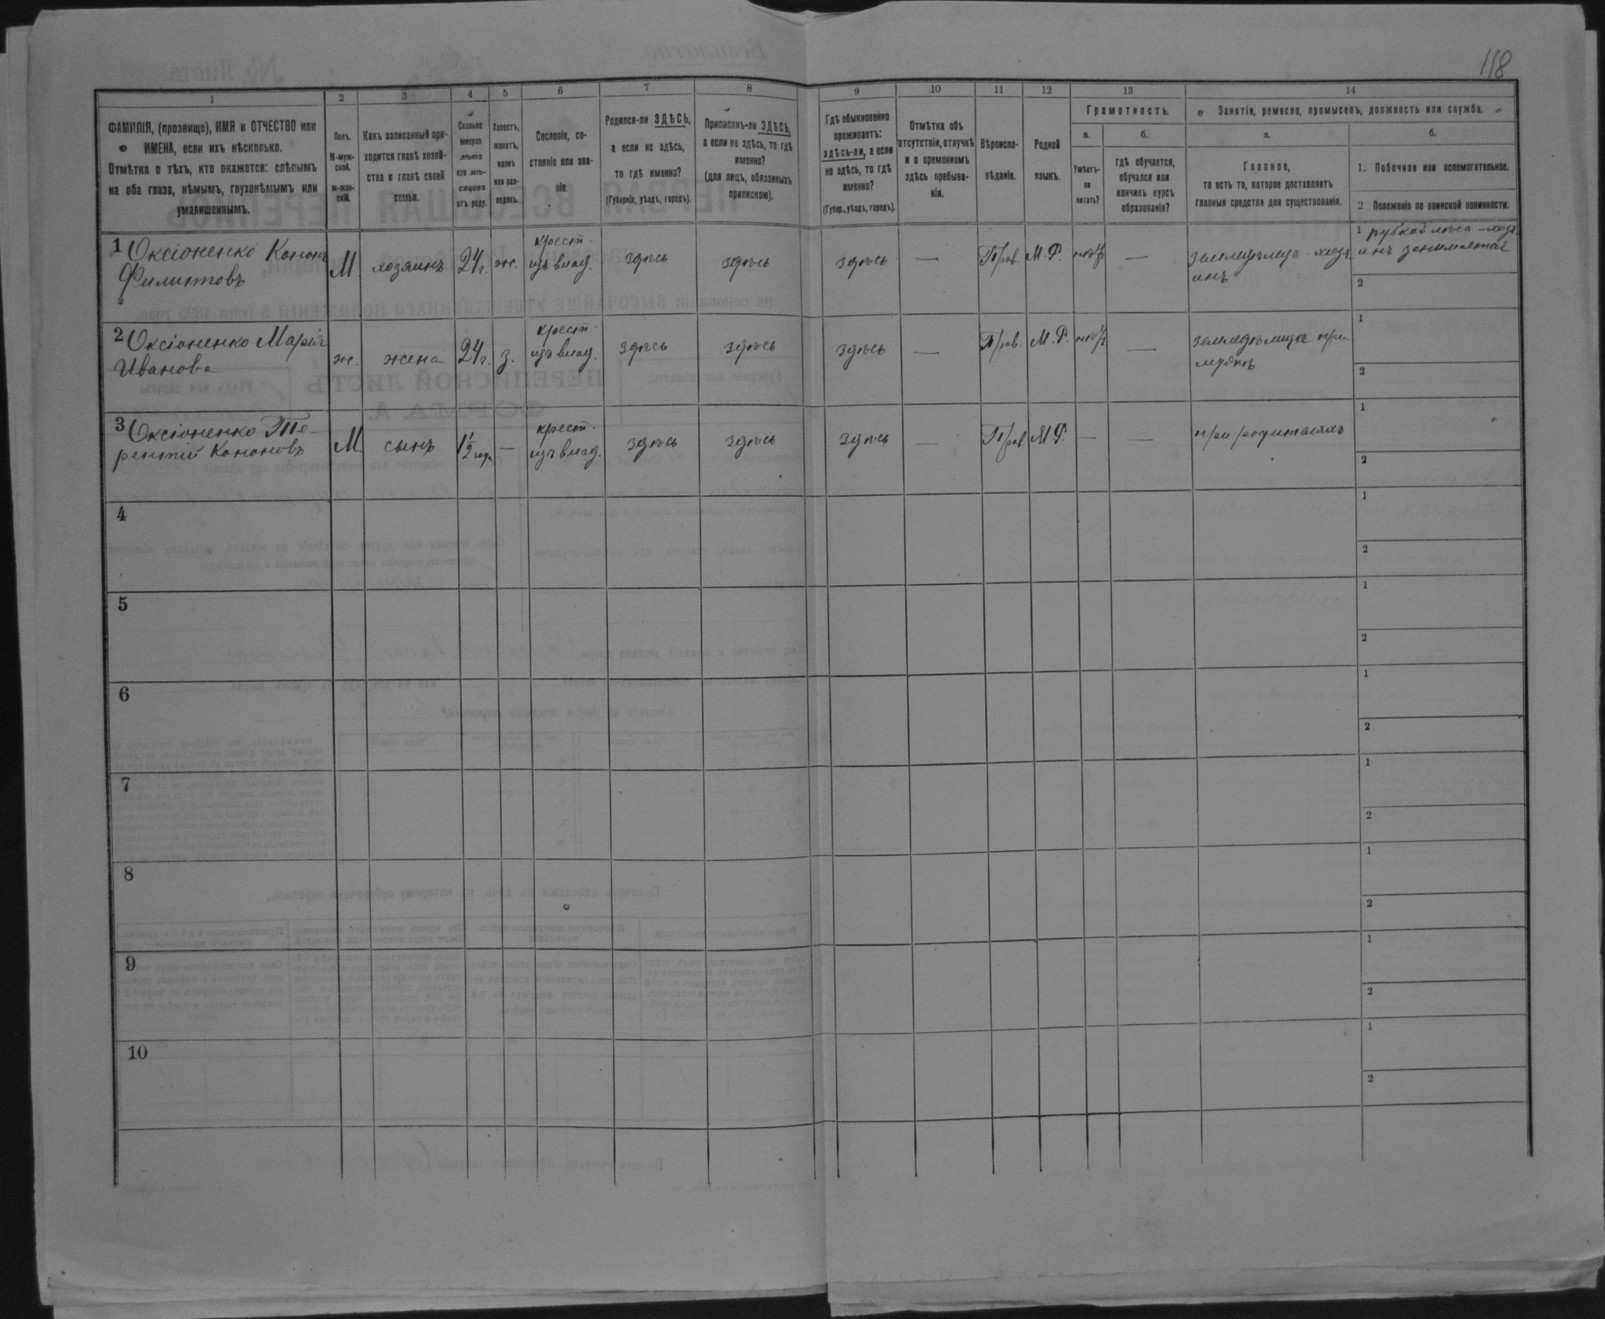 118
1
2
3
4
5
6
7
8
9
10
11
12
13
14
ФАМИЛІЯ, (прозвище), ИМЯ и ОТЧЕСТВО или
ИМЕНА, если ихъ нѣсколько.
Отмѣтка о тѣхъ, кто окажется: слѣпымъ
на оба глаза, нѣмымъ, глухонѣмымъ или
умалишеннымъ.
Полъ.
М-муж-
ской.
Ж-жен-
скій.
Какъ записанный при-
ходится главѣ хозяй-
ства и главѣ своей
семьи.
Сколько
минуло
лѣтъ
или мѣ-
сяцевъ
отъ роду.
Холостъ,
женатъ,
вдовъ
или раз-
веденъ.
Сословіе, со-
стояніе или зва-
ніе
Родился-ли ЗДѢСЬ,
а если не здѣсь,
то гдѣ именно?
(Губернія, уѣздъ, городъ).
Приписанъ-ли ЗДѢСЬ,
а если не здѣсь, то гдѣ
именно?
(для лицъ, обязанныхъ
припискою).
Гдѣ обыкновенно
проживаетъ:
здѣсь-ли, а если
не здѣсь, то гдѣ
именно?
(Губер., уѣздъ, городъ).
Отмѣтка объ
отсутствіи, отлучкѣ
и о временномъ
здѣсь пребыва-
ніи.
Вѣроиспо-
вѣданіе.
Родной
языкъ.
Грамотность.
а.
Умѣетъ-
ли
читать?
б.
гдѣ обучается,
обучался или
кончилъ курсъ
образованія?
Занятія, ремесло, промыселъ, должность или служба.
а.
Главное,
то есть то, которое доставляетъ
главныя средства для существованія.
б.
1. Побочное или вспомогательное.
2 Положеніе по воинской повинности.
1 Оксіоненко Кононъ
Филиповъ
М
хозяинъ
24 г.
ж.
крест.
изъ влад.
здѣсь
здѣсь
здѣсь
—
Прав.
М. Р.
нѣтъ
—
хозя-
инъ
1 рубкой лѣса – хозя
инъ занимается
2
2 Оксіоненко Марія
Иванова
ж.
жена
24 г.
з.
крест.
изъ влад.
здѣсь
здѣсь
здѣсь
—
Прав.
М. Р.
нѣтъ
—
земледѣлица при
мужѣ
1
2
3 Оксіоненко Те-
рентій Кононовъ
М
сынъ
1½ года
—
крест.
изъ влад.
здѣсь
здѣсь
здѣсь
—
Прав
М. Р.
—
—
при родителяхъ
1
2
4
1
2
5
1
2
6
1
2
7
1
2
8
1
2
9
1
2
10
1
2